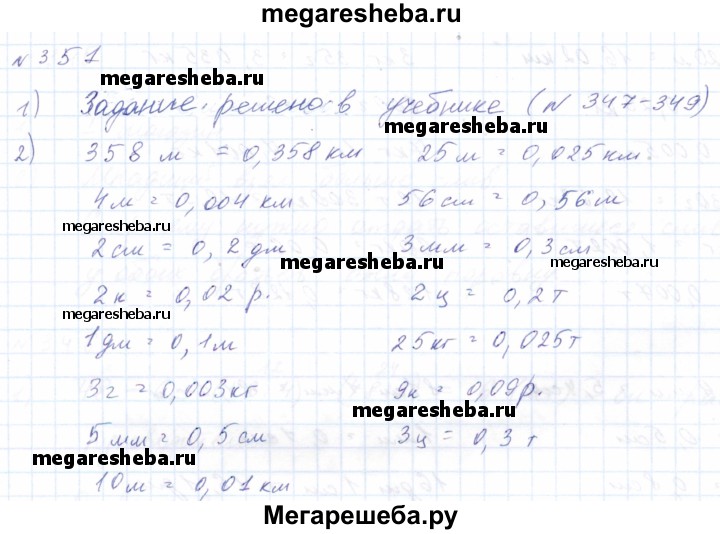 megaresheba.ru
№ 351
megaresheba.ru
1) Задание решено в учебнике (№ 347-349)
megaresheba.ru
2) 358 м = 0,358 км 25 м = 0,025 км
4 м = 0,004 км 56 см = 0,56 м
megaresheba.ru
2 см = 0,2 дм 3 мм = 0,3 см
megaresheba.ru megaresheba.ru
2 к = 0,02 р. 2 ц = 0,2 т
megaresheba.ru
1 дм = 0,1 м 25 кг = 0,025 т
3 г = 0,003 кг 9 к = 0,09 р.
megaresheba.ru
5 мм = 0,5 см 3 ц = 0,3 т
megaresheba.ru
10 м = 0,01 км
Мегарешеба.ру